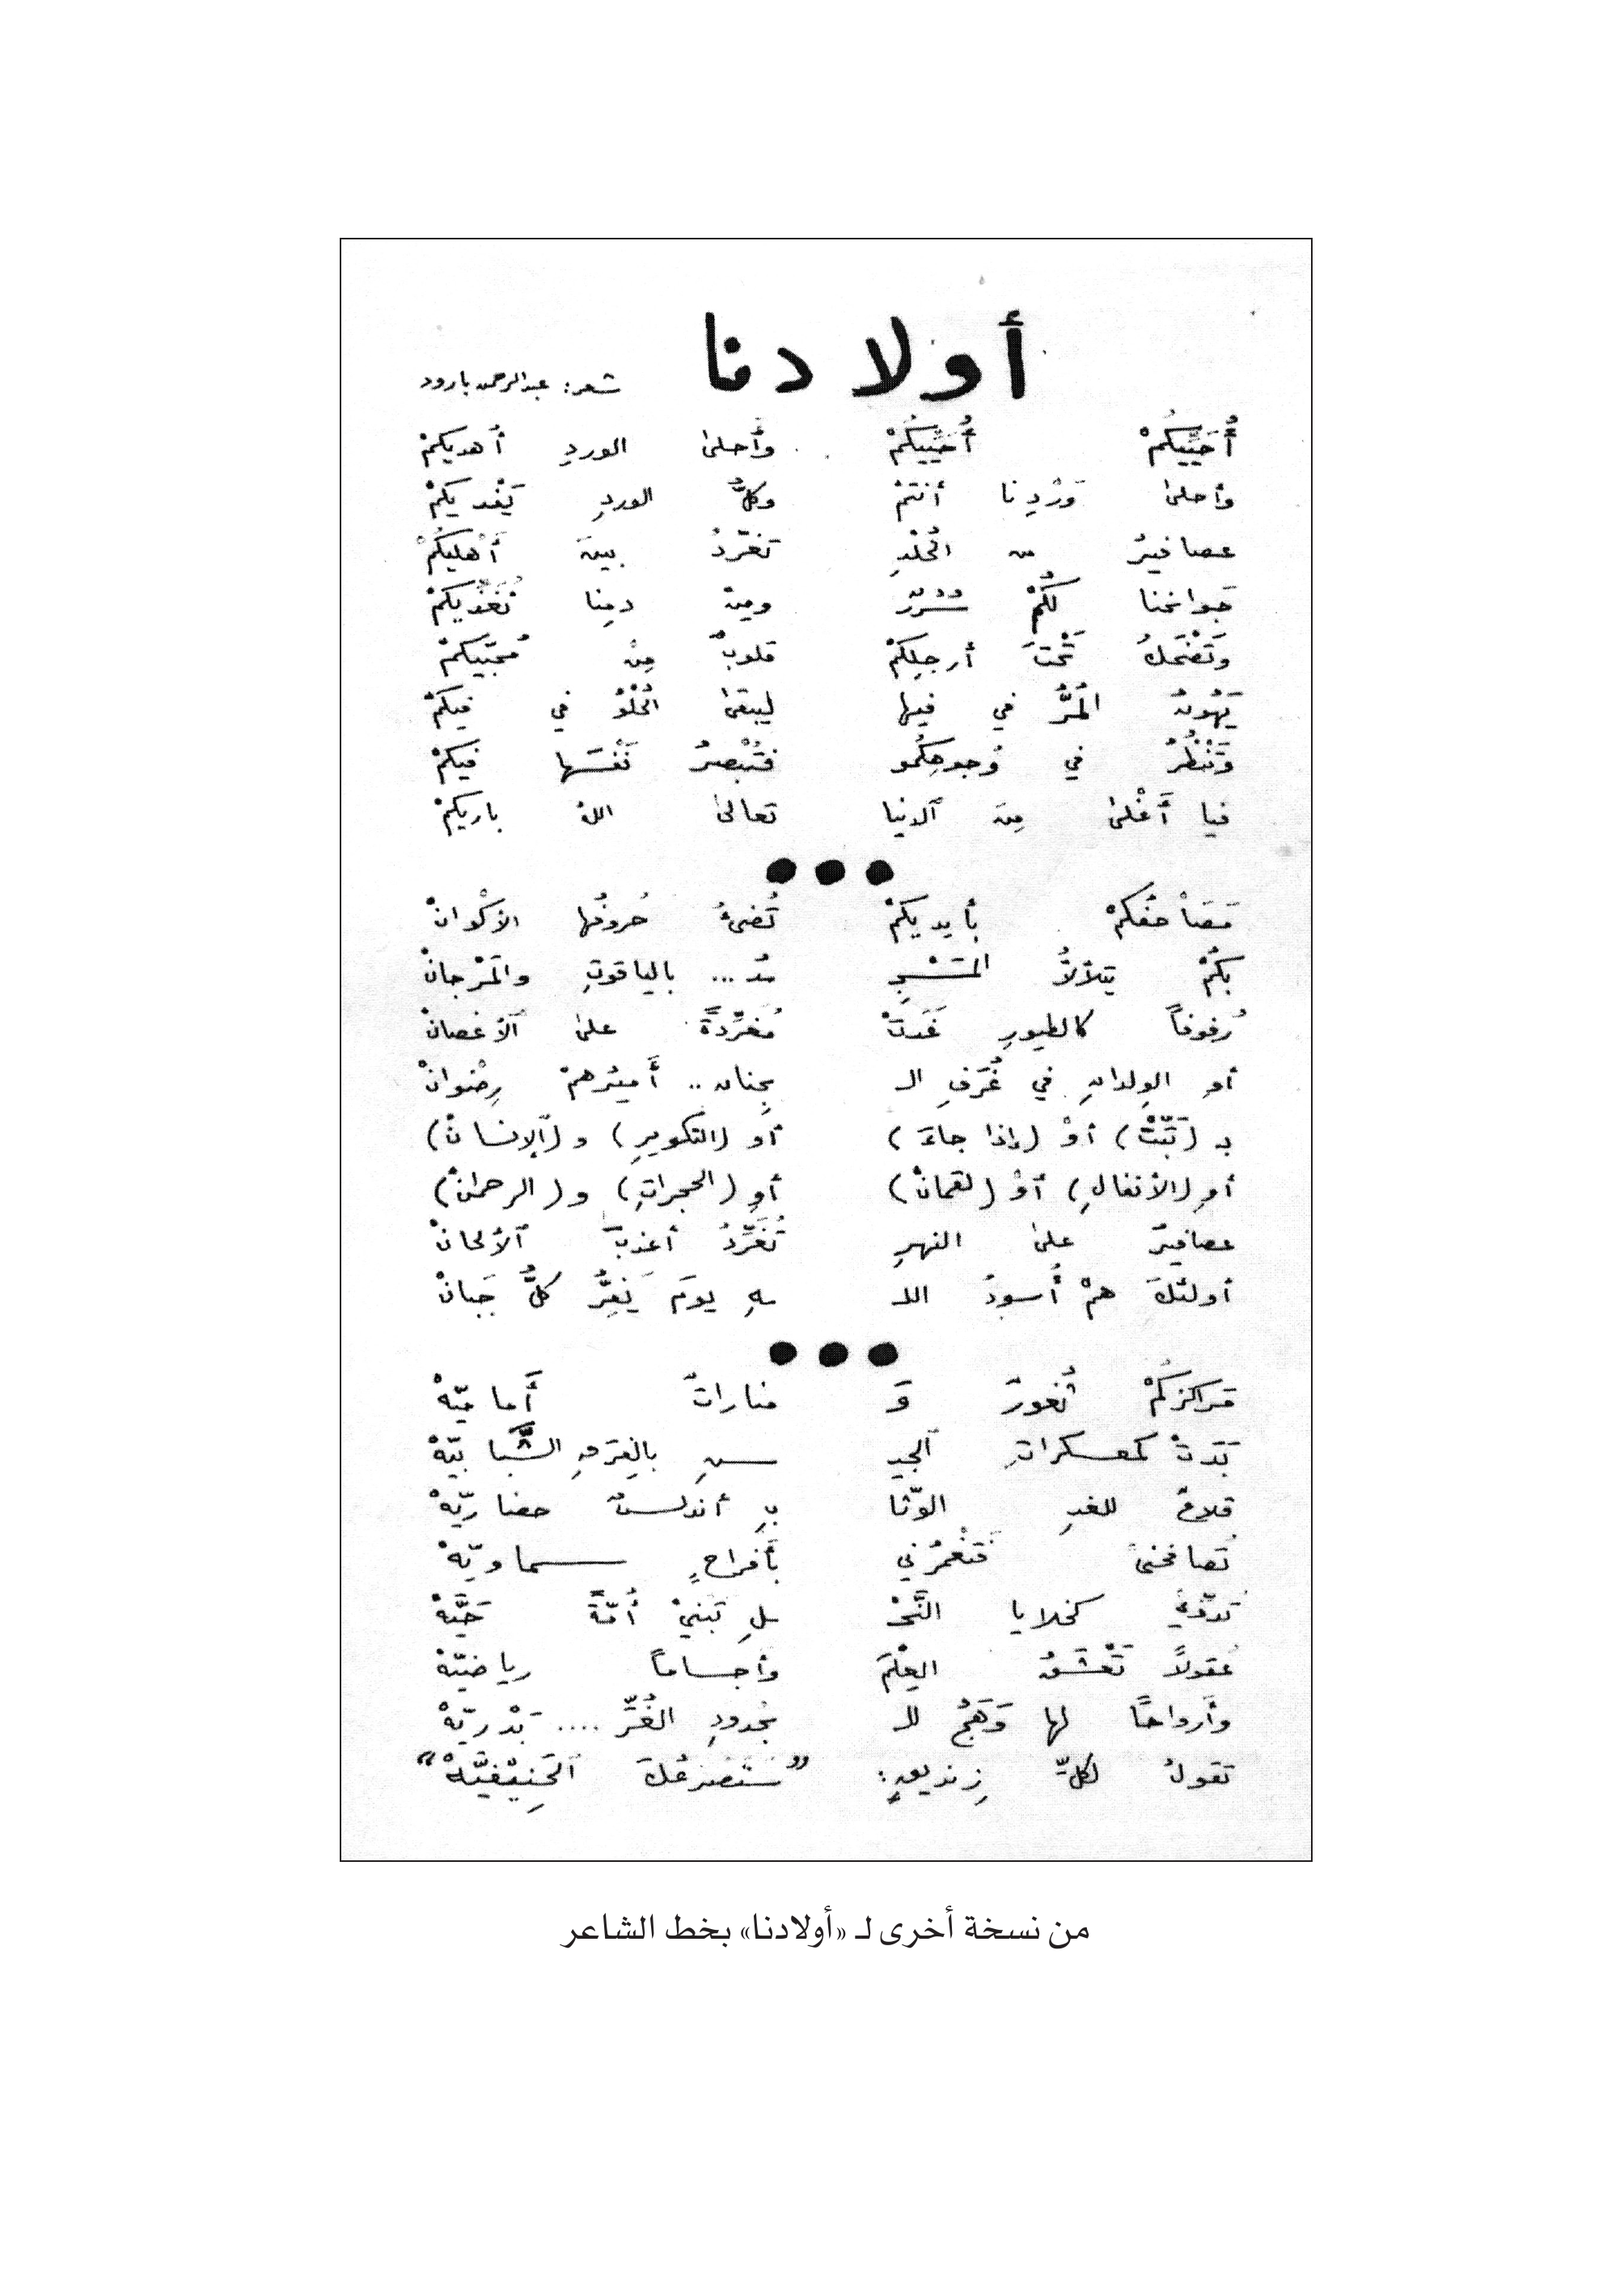 أولادنا
شعر: عبدالرحمن بارود
أُحَيِّيكُمْ أُحَيِّيكُمْ وأَحلىٰ الوردِ أُهديكمْ
وأحلىٰ وَرْدِنا أنتمْ وكلُّ الوردِ يَفْديكمْ
عصافيرٌ من الخُلْدِ تغرّدُ بينَ أَهْليكُمْ
جَوانحنا لكُمْ سُرُرٌ ومِنْ دمِنا نُغَذّيكمْ
وتَضْحَكُ تَحْتَ أرجلِكمْ قلوبٌ مِنْ مُحبّيكمْ
يَهُونُ المُرُّ في فيها ليبقىٰ الحُلْوُ في فيكمْ
وتَنْظُرُ في وُجوهِكُمو فتُبْصِرُ نَفْسَها فيكمْ
فيا أَغْلىٰ مِنَ ٱلدنيا تعالىٰ اللهُ باريكمْ
مَصَاحفُكمْ بأيديكمْ تُضيءُ حُروفُها الأكْوانْ
بكُمْ يتلألأُ المَسْـجِـ ـدُ... بالياقوتِ والمَرْجانْ
رُفوفاً كالطيورِ غَدتْ مُغرِّدةً علىٰ ٱلأغصانْ
أوِ الوِلدانِ في غُرَفِ الـ ـجِنانِ.. أَميرُهمْ رِضْوانْ
بـ (تَبَّتْ) أوْ (إذا جاءَ) أو (التكويرِ) و (ٱلإنسانْ)
أوِ (الأنفالِ) أوْ (لقمانْ) أوِ (الحجراتِ) و (الرحمٰنْ)
عصافيرٌ علىٰ النهرِ تُغَرِّدُ أعذبَ ٱلألحانْ
أولئكَ همْ أُسودُ اللـ ـهِ يومَ يَفِرُّ كلُّ جَبانْ
مَراكزكُمْ ثُغورٌ وَ مناراتٌ أَماميّهْ
بَدَتْ كمعسكراتِ ٱلجيـ ـشِ بالفِرَقِ الشَّبابيّهْ
قلاعٌ للغدِ الوثّا بِ أندلسٌ حضاريّهْ
تُصافحني فَتَغْمرُني بأَفراحٍ سماويّهْ
تدوّي كخلايا النَّحْـ ـلِ تَبنيْ أُمّةً حَيَّهْ
عقولاً تَعْشَقُ العِلْمَ وأجساماً رياضيّهْ
وأرواحًا لها وَهَجٌ للـ ـجُدودِ الغُرِّ .... بَدْريّهْ
تقولُ لكلِّ زِنديقٍ: "سَتَصْرَعُكَ ٱلحَنِيْفيَّهْ"
من نسخة أخرى لـ «أولادنا» بخط الشاعر